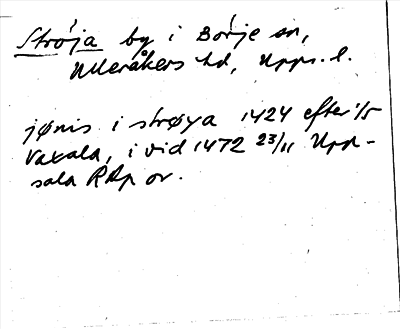 Ströja by i Börje sn,
Ulleråkers hd, Upps. l.
jønis i strøya 1424 efter 1/5
Vaxala, i vid 1472 23/11 Upp-
sala RAp or.